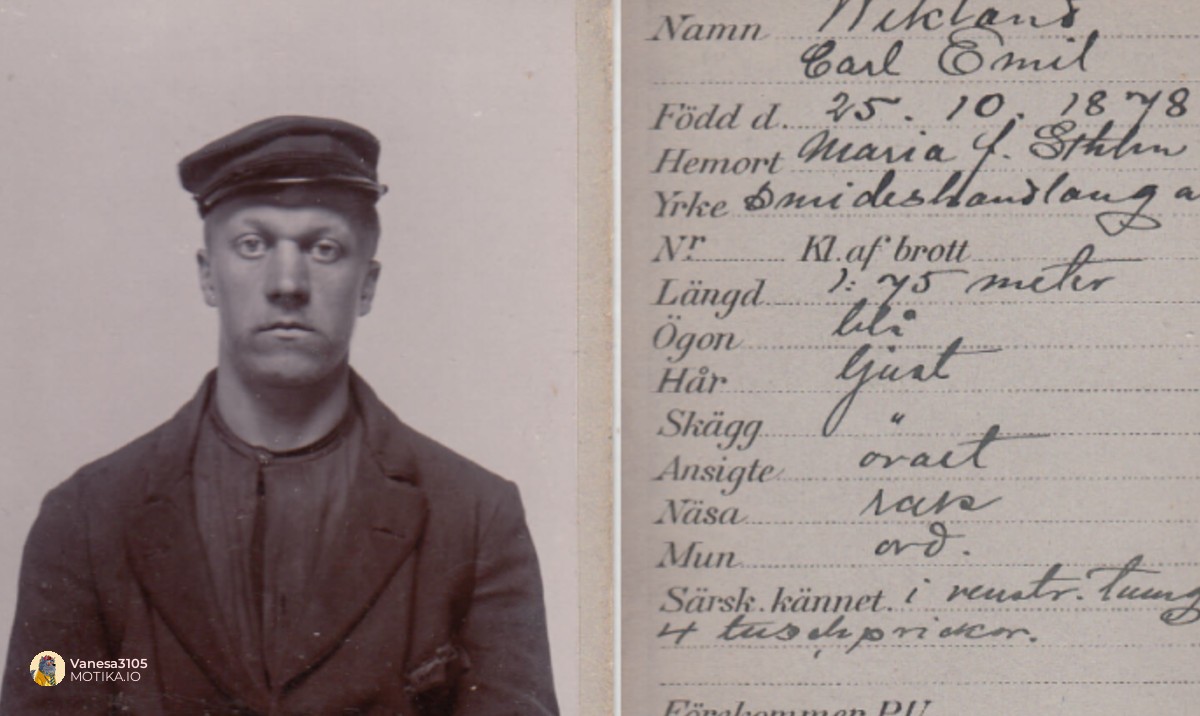 Namn Wiklund
Carl Emil
Född d. 25. 10. 1878
Hemort Maria f. Sthlm
Yrke Smideshandlanga
Nr Kl. af brott
Längd 1: 75 meter
Ögon blå
Hår ljust
Skägg "
Ansigte ovalt
Näsa rak
Mun ord.
Särsk. kännet. i venstr. tum
4 tuschprickor.
Förekommer P.U.
Vanesa3105
MOTIKA.IO